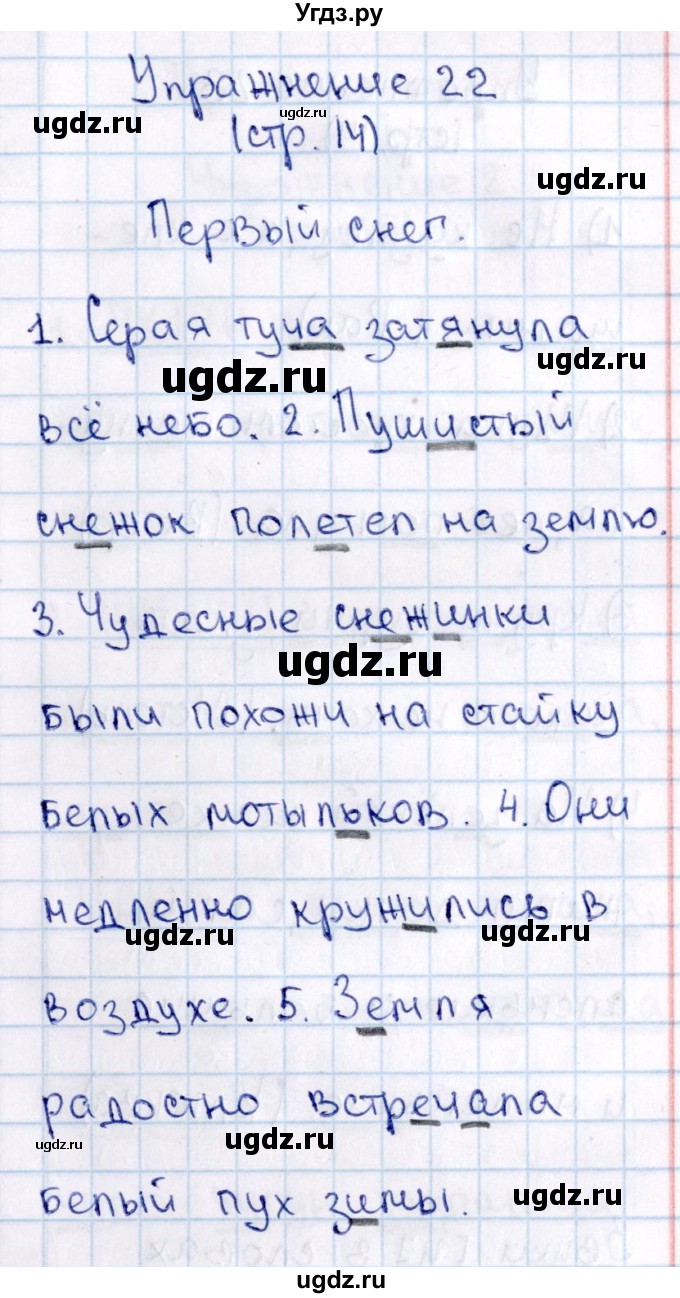 Угдз.ру
Упражнение 22
ugdz.ru
ugdz.ru
(стр. 14)
ugdz.ru
Первый снег.
1. Серая туча затянула
ugdz.ru
ugdz.ru
всё небо. 2. Пушистый
снежок полетел на землю.
3. Чудесные снежинки
ugdz.ru
были похожи на стайку
белых мотыльков. 4. Они
медленно кружились в
ugdz.ru
ugdz.ru
воздухе. 5. Земля
радостно встречала
ugdz.ru
ugdz.ru
белый пух зимы.
ugdz.ru
ugdz.ru